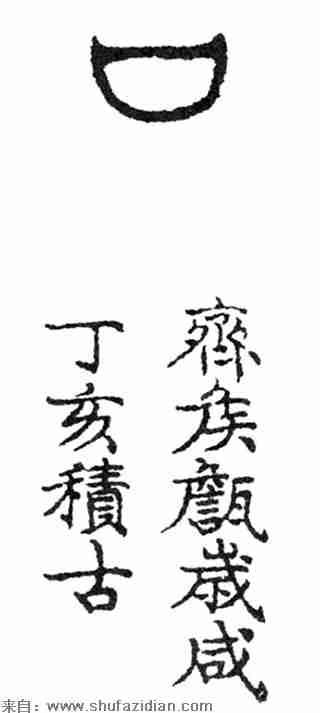 齊矦甔歳咸
丁亥積古
来自：www.shufazidian.com